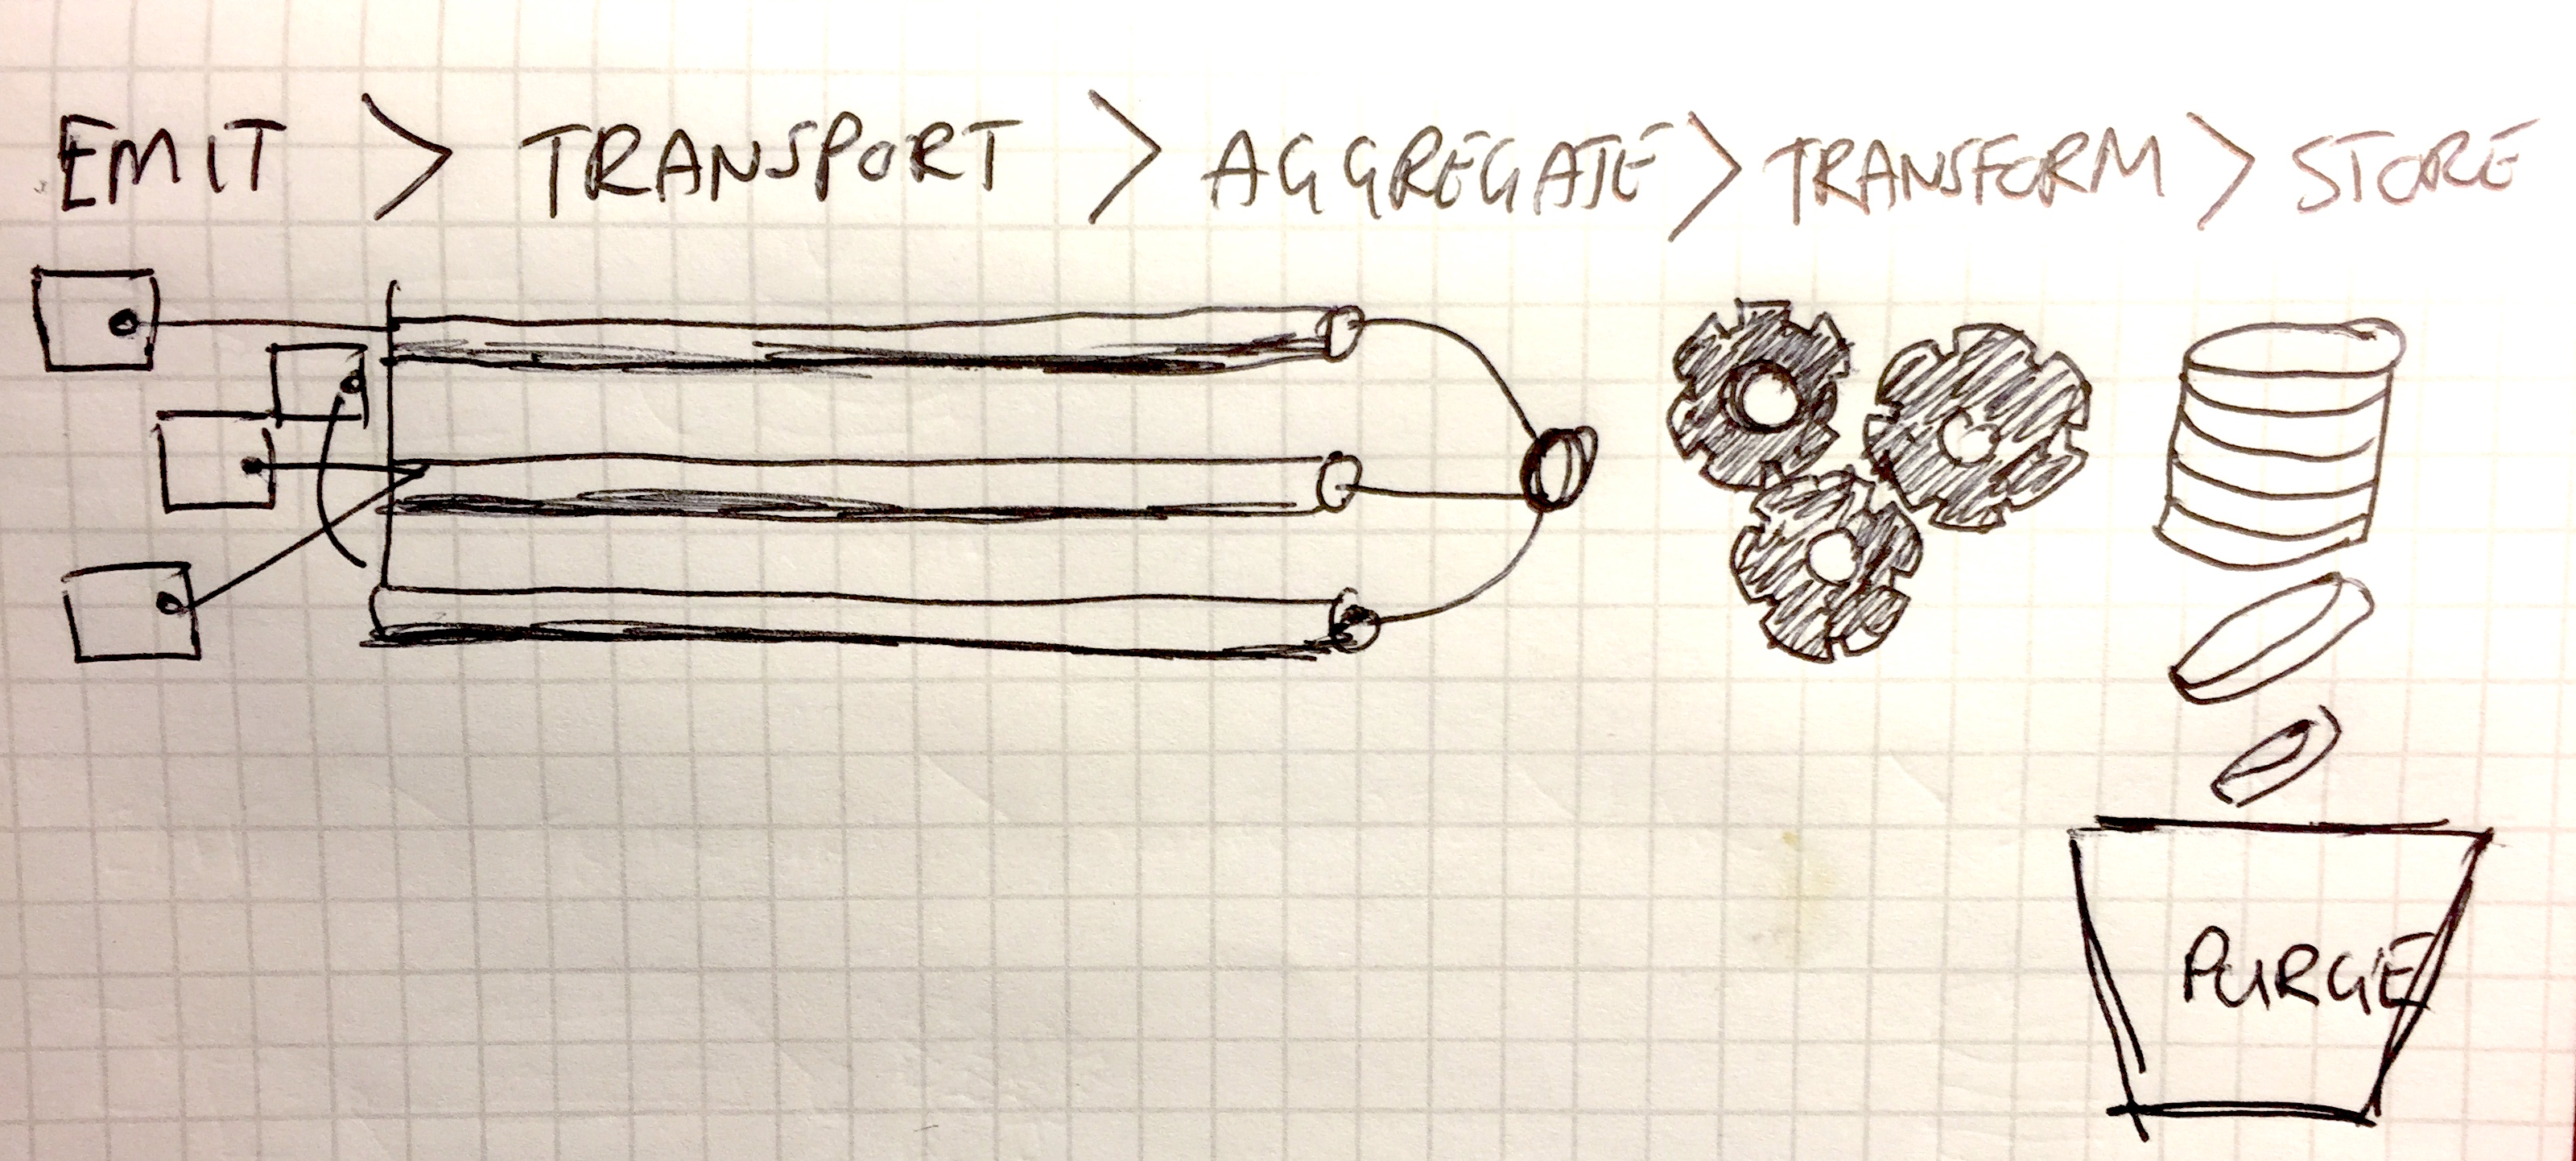 EMIT > TRANSPORT > AGGREGATE > TRANSFORM > STORE
PURGE